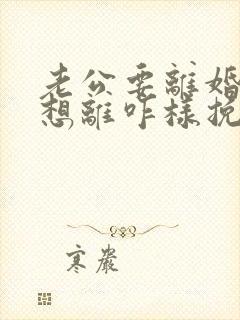 老公要離婚
想離咋樣挽
寒嚴